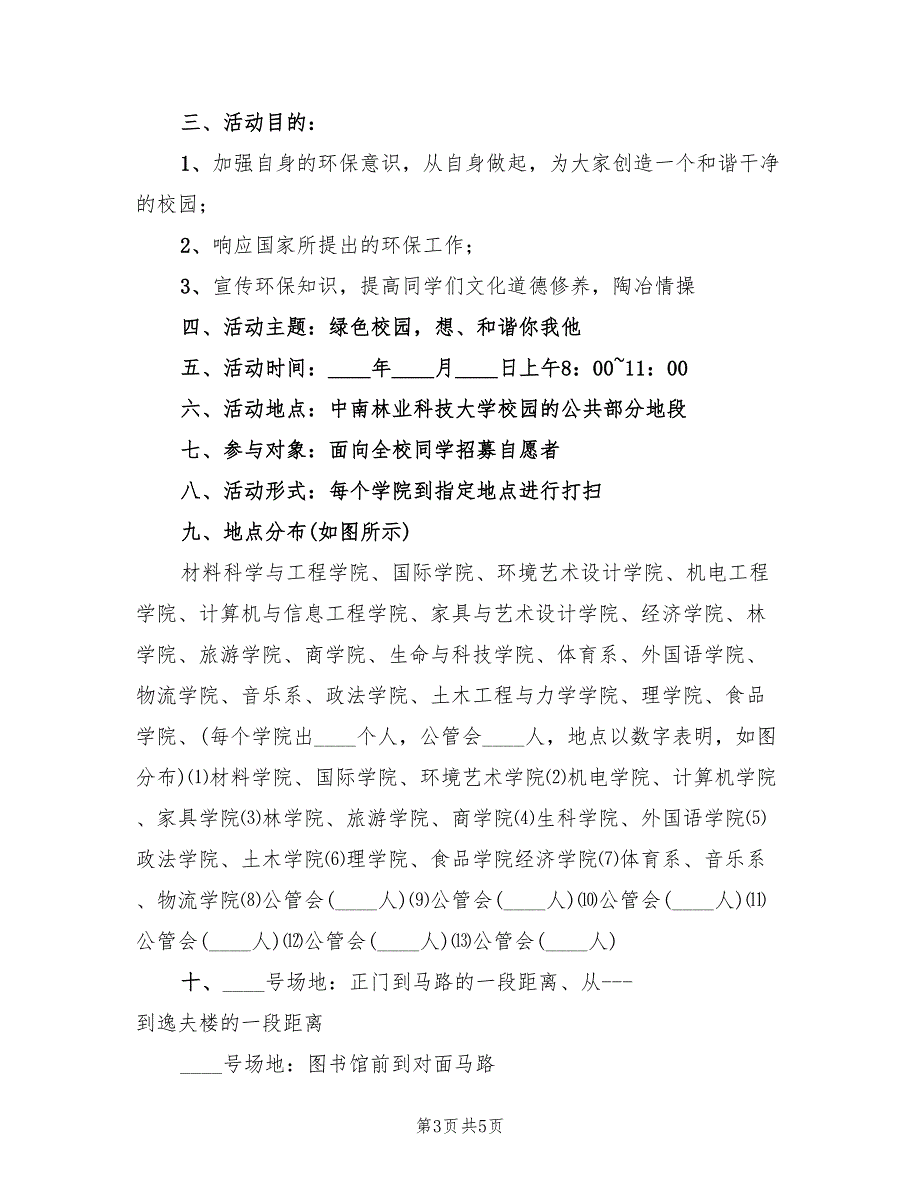 三、活动目的：
1、加强自身的环保意识，从自身做起，为大家创造一个和谐干净
的校园；
2、响应国家所提出的环保工作；
3、宣传环保知识，提高同学们文化道德修养，陶冶情操
四、活动主题：绿色校园，想、和谐你我他
五、活动时间：____年____月____日上午8：00~11：00
六、活动地点：中南林业科技大学校园的公共部分地段
七、参与对象：面向全校同学招募自愿者
八、活动形式：每个学院到指定地点进行打扫
九、地点分布(如图所示)
材料科学与工程学院、国际学院、环境艺术设计学院、机电工程
学院、计算机与信息工程学院、家具与艺术设计学院、经济学院、林
学院、旅游学院、商学院、生命与科技学院、体育系、外国语学院、
物流学院、音乐系、政法学院、土木工程与力学学院、理学院、食品
学院、(每个学院出____个人，公管会____人，地点以数字表明，如图
分布)⑴材料学院、国际学院、环境艺术学院⑵机电学院、计算机学院
、家具学院⑶林学院、旅游学院、商学院⑷生科学院、外国语学院⑸
政法学院、土木学院⑹理学院、食品学院经济学院⑺体育系、音乐系
、物流学院⑻公管会(____人)⑼公管会(____人)⑽公管会(____人)⑾
公管会(____人)⑿公管会(____人)⒀公管会(____人)
十、____号场地：正门到马路的一段距离、从---
到逸夫楼的一段距离
____号场地：图书馆前到对面马路
第3页共5页